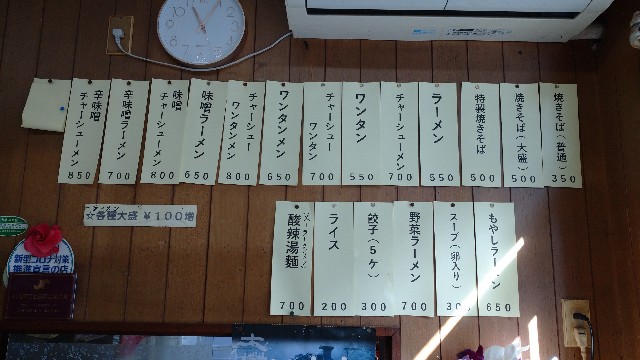 焼きそば(普通) 350
焼きそば(大盛) 500
特製焼きそば 500
ラーメン 550
チャーシューメン 700
ワンタン 550
チャーシューワンタン 700
ワンタンメン 650
チャーシューワンタンメン 800
味噌ラーメン 650
味噌チャーシューメン 800
辛味噌ラーメン 700
辛味噌チャーシューメン 850
もやしラーメン 650
スープ(卵入り) 30
野菜ラーメン 700
餃子(5ケ) 300
ライス 200
酸辣湯麺 700
ラーメン
☆各種大盛 ¥100増
新型コロナ対策
推進宣言の店